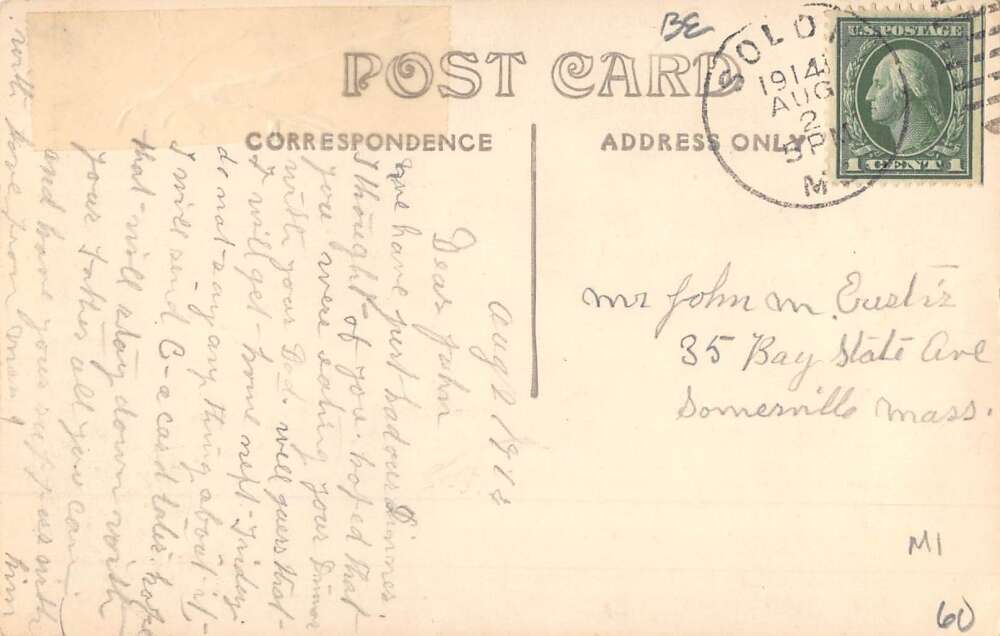 BE
POST CARD
SOLON
1914
AUG
2
5 PM
M
U.S. POSTAGE
1 CENT 1
CORRESPONDENCE
ADDRESS ONLY
Aug 2 1914
Dear John
We have just had our Dinner.
I thought of you. hoped that
you were eating your Dinner
with your Dad. will guess that
I will get home next Friday
do not say any thing about it
I will send C- a card later. hope
that will stay down with
your Father all you can
and have your suppers with
him
with love from
Mr John M. Eustis
35 Bay State Ave
Somerville Mass.
MI
60